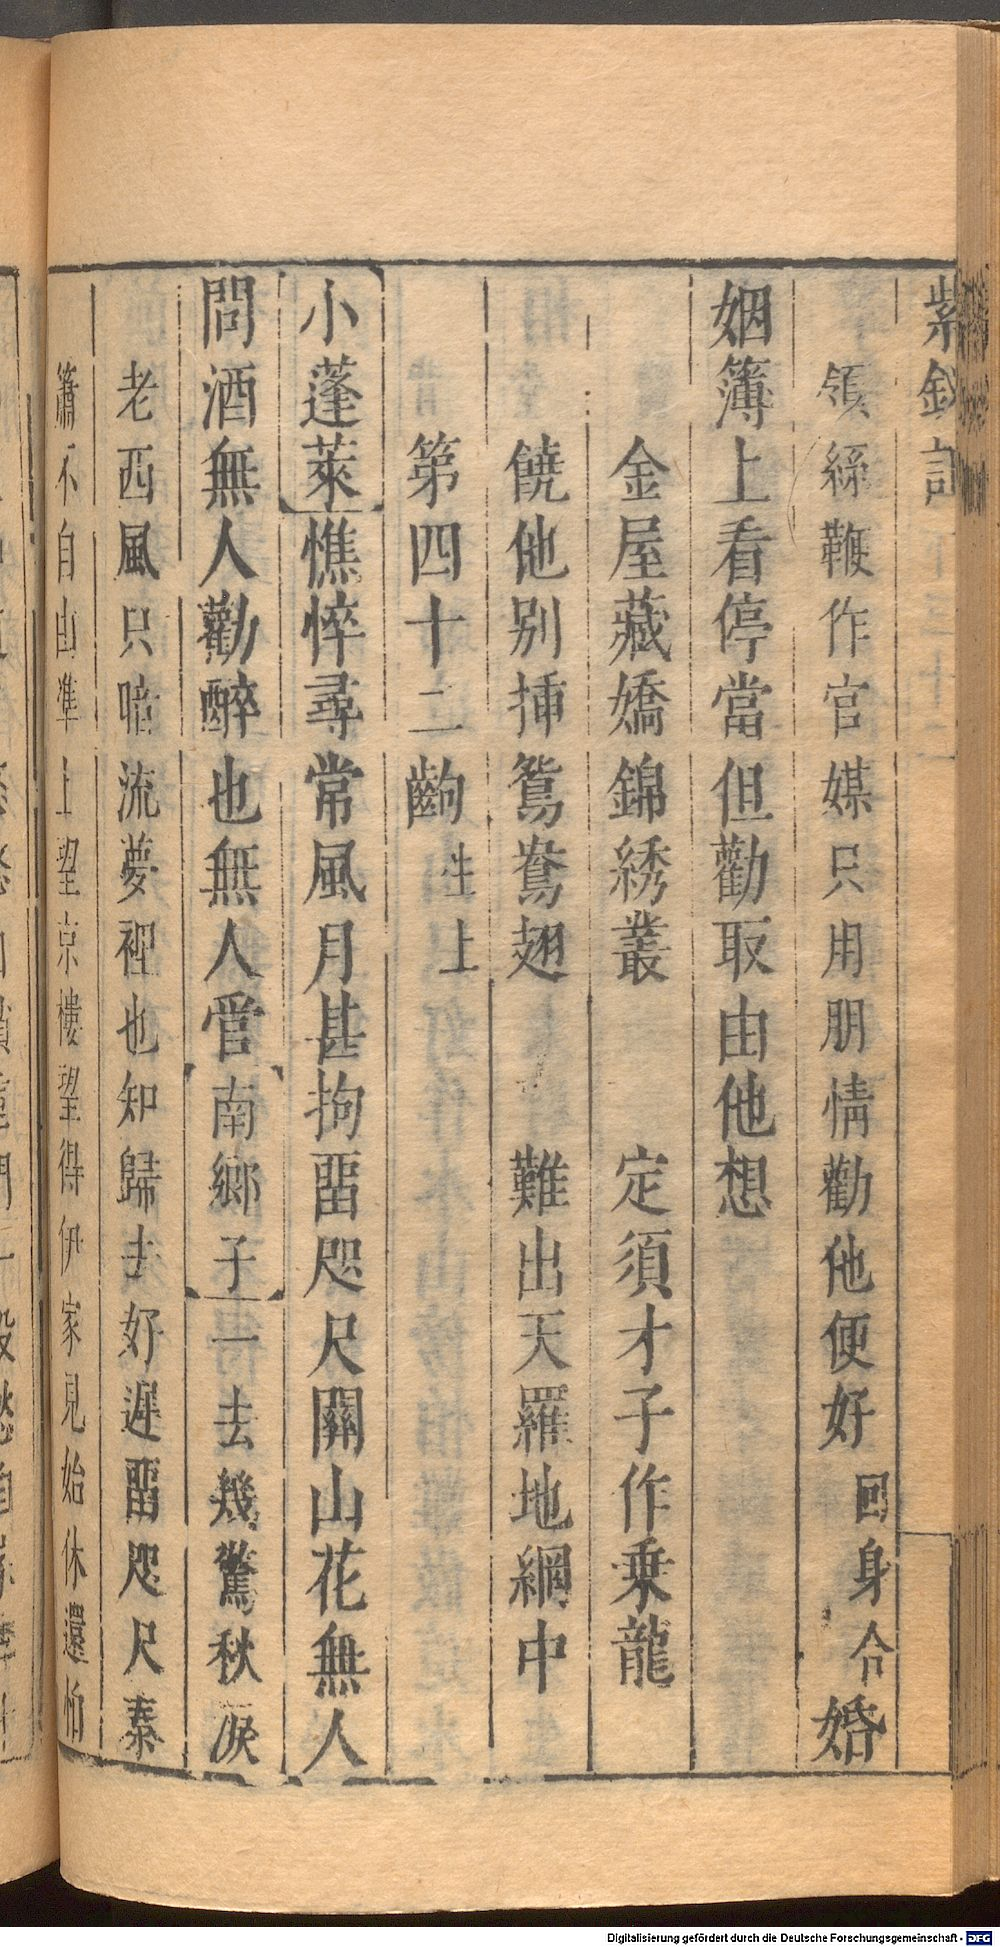 紫釵記
領絲鞭作官媒只用朋情勸他便好回身合婚
姻簿上看停當但勸取由他想
金屋藏嬌錦綉叢 定須才子作乗龍
饒他別挿鴛鴦翅 難出天羅地網中
第四十二齣 生上
小蓬萊憔悴尋常風月甚拘畱咫尺關山花無人
問酒無人勸醉也無人管南鄉子一去幾驚秋淚
老西風只暗流夢裡也知歸去好遲畱咫尺秦
簫不自由準上望京樓望得伊家見始休還怕
Digitalisierung gefördert durch die Deutsche Forschungsgemeinschaft - DFG